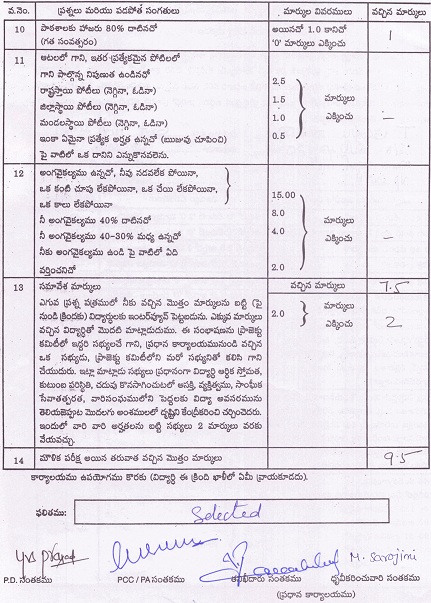 వ.నెం. ప్రశ్నలు మరియు పడపోత సంగతులు మార్కుల వివరములు వచ్చిన మార్కులు
10 పాఠశాలకు హాజరు 80% దాటినచో అయినచో 1.0 కానిచో 1
(గత సంవత్సరం) '0' మార్కులు ఎక్కించు
11 ఆటలలో గాని, ఇతర ప్రత్యేకమైన పోటీలలో
గాని పాల్గొన్న నిపుణత ఉండినచో
రాష్ట్రస్థాయి పోటీలు (నెగ్గినా, ఓడినా) 2.5
జిల్లాస్థాయి పోటీలు (నెగ్గినా, ఓడినా) 1.5 మార్కులు
మండలస్థాయి పోటీలు (నెగ్గినా, ఓడినా) 1.0 ఎక్కించు -
ఇంకా ఏమైనా ప్రత్యేక అర్హత ఉన్నచో (ఋజువు చూపించి) 0.5
పై వాటిలో ఒక దానిని ఎన్నుకొనవలెను.
12 అంగవైకల్యము ఉండిన, నీవు నడవలేక పోయినా,
ఒక కంటి చూపు లేకపోయినా, ఒక చేయి లేకపోయినా, 15.00
ఒక కాలు లేకపోయినా
నీ అంగవైకల్యము 40% దాటినచో 8.0 మార్కులు
నీ అంగవైకల్యము 40-30% మధ్య ఉన్నచో 4.0 ఎక్కించు -
నీకు అంగవైకల్యము ఉండి పై వాటిలో ఏది
వర్తించనిచో 2.0
13 సమావేశ మార్కులు వచ్చిన మార్కులు 7.5
ఎగువ ప్రశ్న పత్రములో నీకు వచ్చిన మొత్తం మార్కులను బట్టి (పై
నుండి క్రిందకు) విద్యార్థులకు ఇంటర్వ్యూన్ పెట్టబడును. ఎక్కువ మార్కులు 2.0 మార్కులు
వచ్చిన విద్యార్థితో మొదటి మాట్లాడుదుము. ఈ సంభాషణను ప్రాజెక్టు ఎక్కించు 2
కమిటీలో ఇద్దరి సభ్యులచే గాని, ప్రధాన కార్యాలయమునుండి వచ్చిన
ఒక సభ్యుడు, ప్రాజెక్టు కమిటీలోని మరో సభ్యునితో కలిసి గాని
చేయుదురు. ఇట్లా మాట్లాడు సభ్యులు ప్రధానంగా విద్యార్థి ఆర్థిక స్తోమత,
కుటుంబ పరిస్థితి, చదువు కొనసాగించుటలో ఆసక్తి, వ్యక్తిత్వము, సాంఘీక
సేవాతత్పరత, వారిసంఘములోని పెద్దలకు విద్యా అవసరమును
తెలియజెప్పుట మొదలగు అంశములలో దృష్టిని కేంద్రీకరించి చర్చించెదరు.
ఇందులో వారి వారి అర్హతలను బట్టి సభ్యులు 2 మార్కులు వరకు
వేయవచ్చు.
14 మౌళిక పరీక్ష అయిన తరువాత వచ్చిన మొత్తం మార్కులు 9.5
కార్యాలయము ఉపయోగము కొరకు (విద్యార్థి ఈ క్రింది ఖాళీలో ఏమీ వ్రాయకూడదు).
ఫలితము: Selected
M. Sarojini
P.D. సంతకము PCC / PA సంతకము సంతకము ధృవీకరించువారి సంతకము
(ప్రధాన కార్యాలయం)